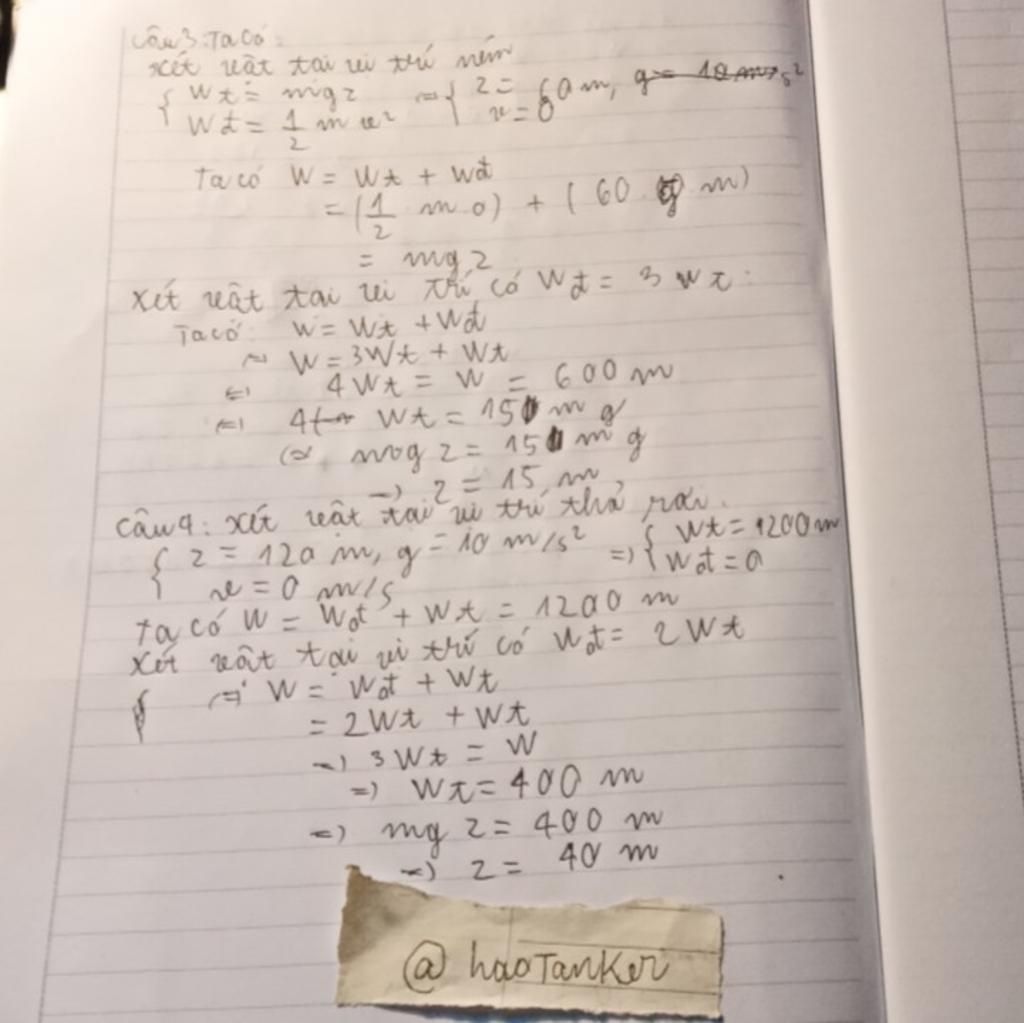 Câu 3: Ta có:
Xét vật tại vị trí ném
{ Wt = mgz => { z = 60 m, g = 10 m/s²
Wđ = 1/2 mv² v = 0
Ta có W = Wt + Wđ
= (1/2 m 0) + (60 g m)
= mgz
Xét vật tại vị trí có Wđ = 3 Wt:
Ta có: W = Wt + Wđ
=> W = 3Wt + Wt
<=> 4Wt = W = 600 m
<=> Wt = 15 m g
<=> mgz = 15 m g
=> z = 15 m
Câu 4: Xét vật tại vị trí thả rơi.
{ z = 120 m, g = 10 m/s² => { Wt = 1200 m
v = 0 m/s Wđ = 0
Ta có W = Wđ + Wt = 1200 m
Xét vật tại vị trí có Wđ = 2 Wt
=> W = Wđ + Wt
= 2Wt + Wt
=> 3Wt = W
=> Wt = 400 m
=> mgz = 400 m
=> z = 40 m
@ haoTanKer